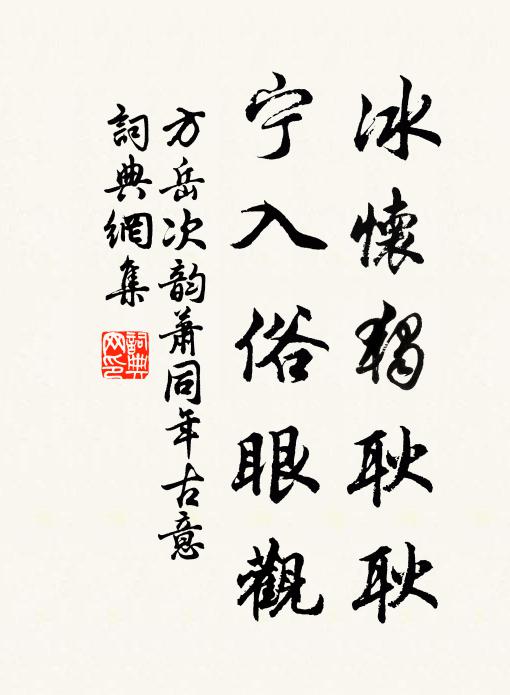 冰懷獨耿耿
宁入俗眼觀
方岳次韵萧同年古意
詞典網集
詞典网印